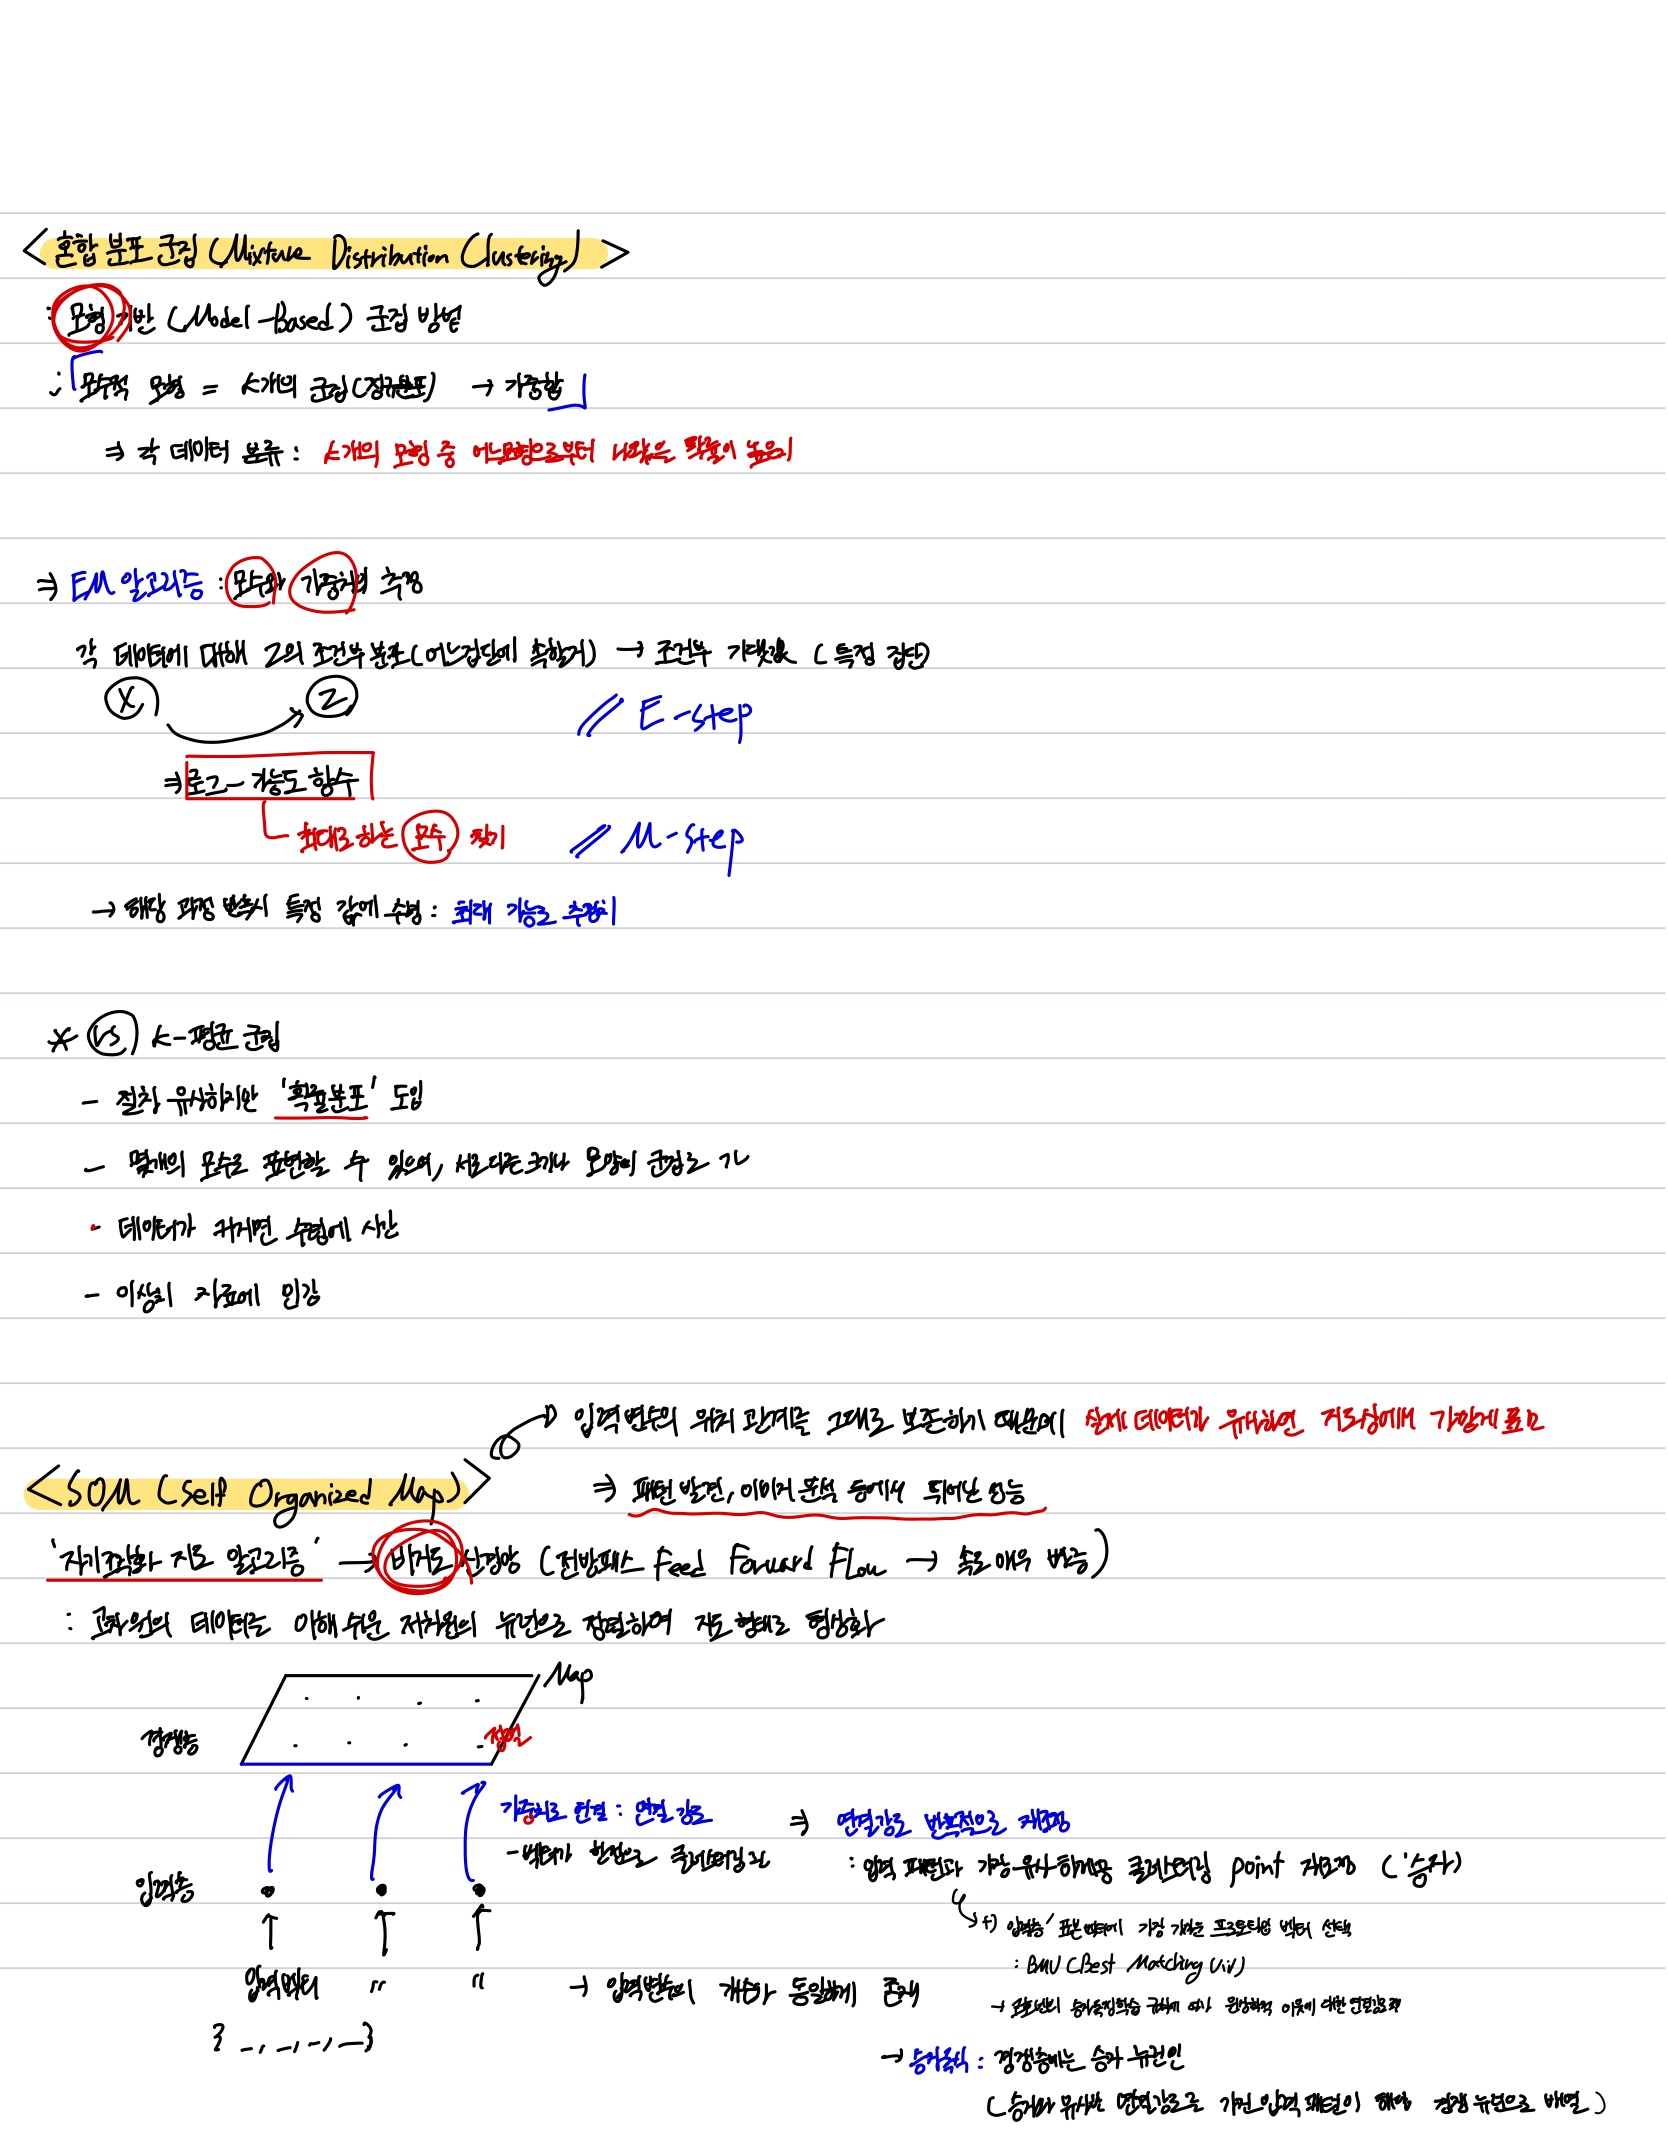 <혼합 분포 군집 (Mixture Distribution Clustering)>
: 모형 기반 (Model-Based) 군집 방법
∴ 모수적 모형 = K개의 군집(정규분포) → 가중합
⇒ 각 데이터 분류 : K개의 모형 중 어느모형으로부터 나왔을 확률이 높은지
⇒ EM 알고리즘 : 모수와 가중치의 추정
각 데이터에 대해 Z의 조건부 분포(어느집단에 속할거) → 조건부 기댓값 (특정 집단)
X Z // E-step
⇒ 로그-가능도 함수
최대로 하는 모수 찾기 // M-step
→ 해당 과정 반복시 특정 값에 수렴 : 최대 가능도 추정치
* VS K-평균 군집
- 절차 유사하지만 '확률분포' 도입
- 몇개의 모수로 표현할 수 있으며, 서로다른 크기나 모양의 군집도 가
- 데이터가 커지면 수렴에 시간
- 이상치 자료에 민감
입력 변수의 위치 관계를 그대로 보존하기 때문에 실제 데이터가 유사하면 지도상에서 가깝게 표
<SOM (Self Organized Map)>
⇒ 패턴 발견, 이미지 분석 등에서 뛰어난 성능
'자기조직화 지도 알고리즘' → 비지도 신경망 (전방패스 Feed Forward Flow → 속도 매우 빠름)
: 고차원의 데이터를 이해 쉬운 저차원의 뉴런으로 정렬하여 지도 형태로 형상화
Map
경쟁층 정렬
가중치로 연결 : 연결 강도 ⇒ 연결강도 반복적으로 재조정
- 벡터가 한점으로 클러스터링
: 입력 패턴과 가장 유사 클러스터링 point 재조정 ('승자)
입력층
+) 입력층' 표본벡터에 가장 가까운 프로토타입 벡터 선택
: BMU (Best Matching Unit)
입력벡터 " " → 입력변수의 개수와 동일하게 존재
→ 코호넨의 승자독점학습 규칙에 따라 위상학적 이웃에 대한 연결강도
{ _, _, _, _ }
→ 승자독식 : 경쟁층에는 승자 뉴런만
(승자와 유사한 연결강도를 가진 입력 패턴이 해당 경쟁 뉴런으로 배열)